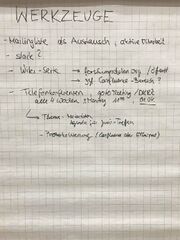 WERKZEUGE
- Mailingliste als Austausch, aktive Mitarbeit
- slack?
- Wiki-Seite → forschungsdaten.org /
→ ggf. Confluence-Bereich?
- Telefonkonferenzen goto Meeting /
alle 4 Wochen
↳ Thema -
Agenda für Juni-Treffen
- Protokollierung (Confluence oder Etherpad)